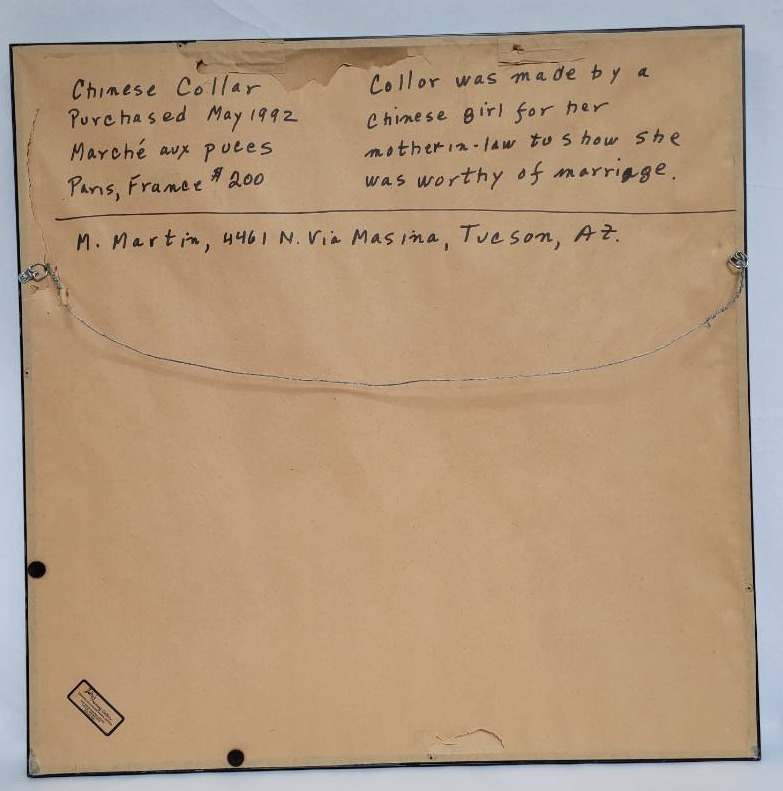 Chinese Collar
Purchased May 1992
Marché aux puces
Paris, France $200
Collor was made by a
Chinese girl for her
mother in-law to show she
was worthy of marriage.
M. Martin, 4461 N. Via Masina, Tucson, AZ.